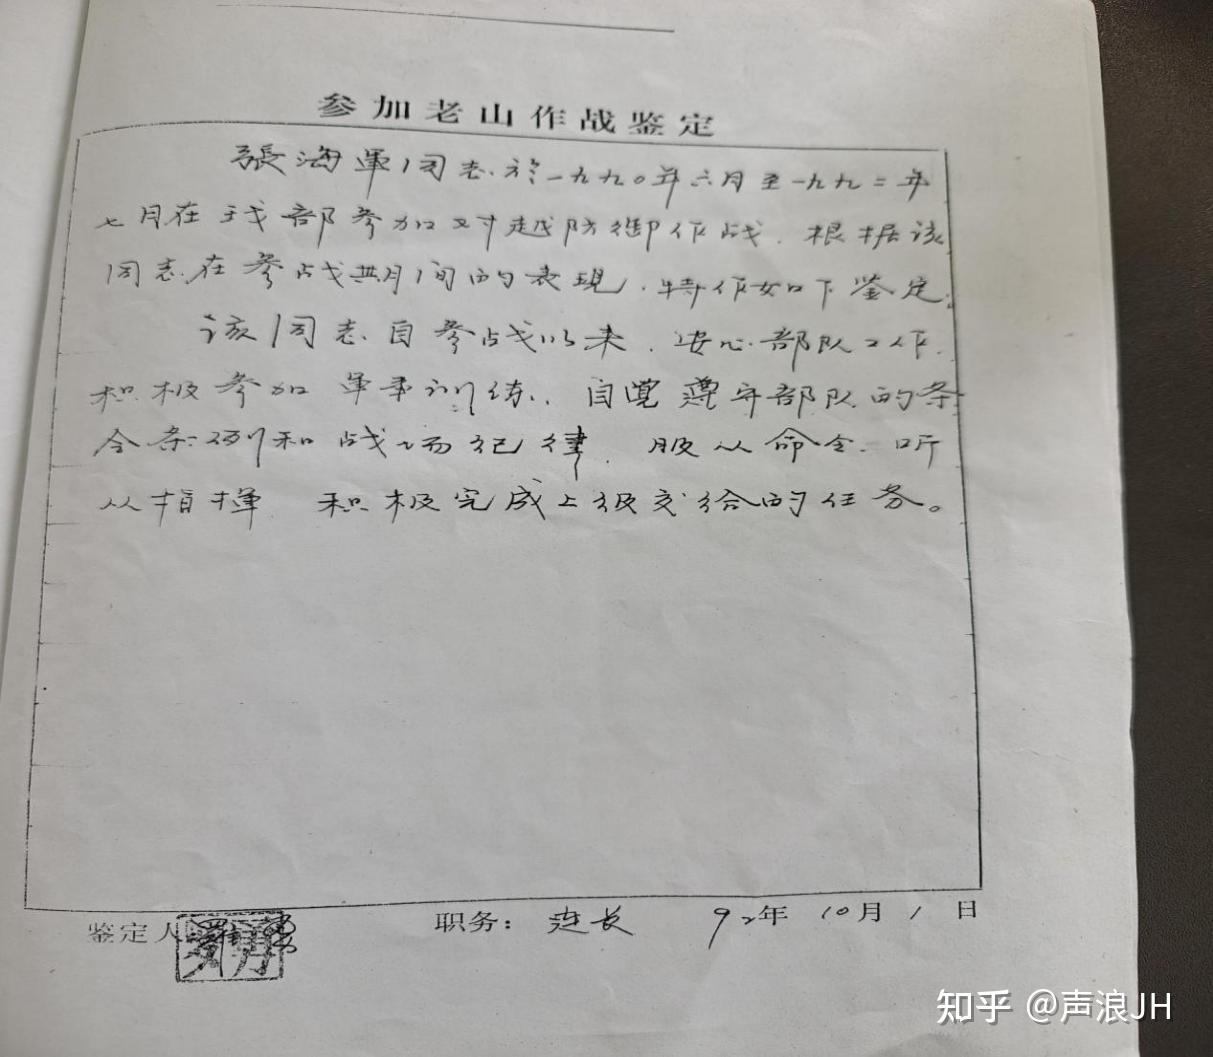 参加老山作战鉴定
張海軍同志於一九九〇年六月至一九九二年
七月在我部参加对越防御作战．根据该
同志在参战期间的表現．特作如下鉴定:
该同志自参战以来．安心部队工作．
积极参加軍事训练．自覺遵守部队的条
令条例和战场纪律．服从命令．听
从指揮 积极完成上级交给的任务。
鉴定人
职务： 连长 92年 10月 1日
知乎 @声浪JH